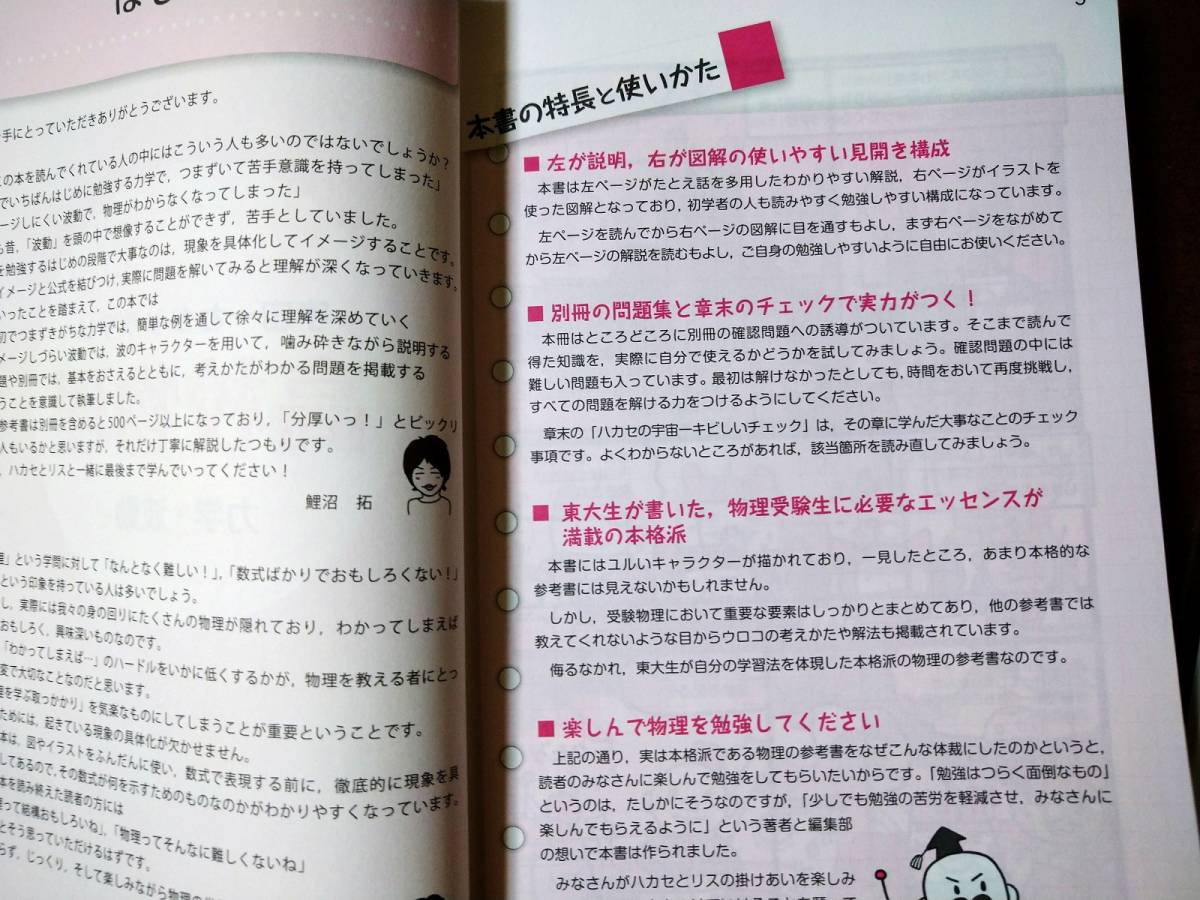 手にとっていただきありがとうございます。
の本を読んでくれている人の中にはこういう人も多いのではないでしょうか？
でいちばんはじめに勉強する力学で，つまずいて苦手意識を持ってしまった」
ージしにくい波動で，物理がわからなくなってしまった」
昔，「波動」を頭の中で想像することができず，苦手としていました。
を勉強するはじめの段階で大事なのは，現象を具体化してイメージすることです。
イメージと公式を結びつけ，実際に問題を解いてみると理解が深くなっていきます。
いったことを踏まえて，この本では
初でつまずきがちな力学では，簡単な例を通して徐々に理解を深めていく
メージしづらい波動では，波のキャラクターを用いて，噛み砕きながら説明する
題や別冊では，基本をおさえるとともに，考えかたがわかる問題を掲載する
うことを意識して執筆しました。
参考書は別冊を含めると500ページ以上になっており，「分厚いっ！」とビックリ
人もいるかと思いますが，それだけ丁寧に解説したつもりです。
，ハカセとリスと一緒に最後まで学んでいってください！
鯉沼　拓
」という学問に対して「なんとなく難しい！」，「数式ばかりでおもしろくない！」
という印象を持っている人は多いでしょう。
し，実際には我々の身の回りにたくさんの物理が隠れており，わかってしまえば
おもしろく，興味深いものなのです。
「わかってしまえば…」のハードルをいかに低くするかが，物理を教える者にとっ
変で大切なことなのだと思います。
を学ぶ取っかかり」を気楽なものにしてしまうことが重要ということです。
ためには，起きている現象の具体化が欠かせません。
本は，図やイラストをふんだんに使い，数式で表現する前に，徹底的に現象を具
してあるので，その数式が何を示すためのものなのかがわかりやすくなっています。
本を読み終えた読者の方には
って結構おもしろいね」，「物理ってそんなに難しくないね」
とそう思っていただけるはずです。
らず，じっくり，そして楽しみながら物理の
本書の特長と使いかた
■ 左が説明，右が図解の使いやすい見開き構成
本書は左ページがたとえ話を多用したわかりやすい解説，右ページがイラストを
使った図解となっており，初学者の人も読みやすく勉強しやすい構成になっています。
左ページを読んでから右ページの図解に目を通すもよし，まず右ページをながめて
から左ページの解説を読むもよし，ご自身の勉強しやすいように自由にお使いください。
■ 別冊の問題集と章末のチェックで実力がつく！
本冊はところどころに別冊の確認問題への誘導がついています。そこまで読んで
得た知識を，実際に自分で使えるかどうかを試してみましょう。確認問題の中には
難しい問題も入っています。最初は解けなかったとしても，時間をおいて再度挑戦し，
すべての問題を解ける力をつけるようにしてください。
章末の「ハカセの宇宙一キビしいチェック」は，その章に学んだ大事なことのチェック
事項です。よくわからないところがあれば，該当箇所を読み直してみましょう。
■ 東大生が書いた，物理受験生に必要なエッセンスが
満載の本格派
本書にはユルいキャラクターが描かれており，一見したところ，あまり本格的な
参考書には見えないかもしれません。
しかし，受験物理において重要な要素はしっかりとまとめてあり，他の参考書では
教えてくれないような目からウロコの考えかたや解法も掲載されています。
侮るなかれ，東大生が自分の学習法を体現した本格派の物理の参考書なのです。
■ 楽しんで物理を勉強してください
上記の通り，実は本格派である物理の参考書をなぜこんな体裁にしたのかというと，
読者のみなさんに楽しんで勉強をしてもらいたいからです。「勉強はつらく面倒なもの」
というのは，たしかにそうなのですが，「少しでも勉強の苦労を軽減させ，みなさんに
楽しんでもらえるように」という著者と編集部
の想いで本書は作られました。
みなさんがハカセとリスの掛けあいを楽しみ